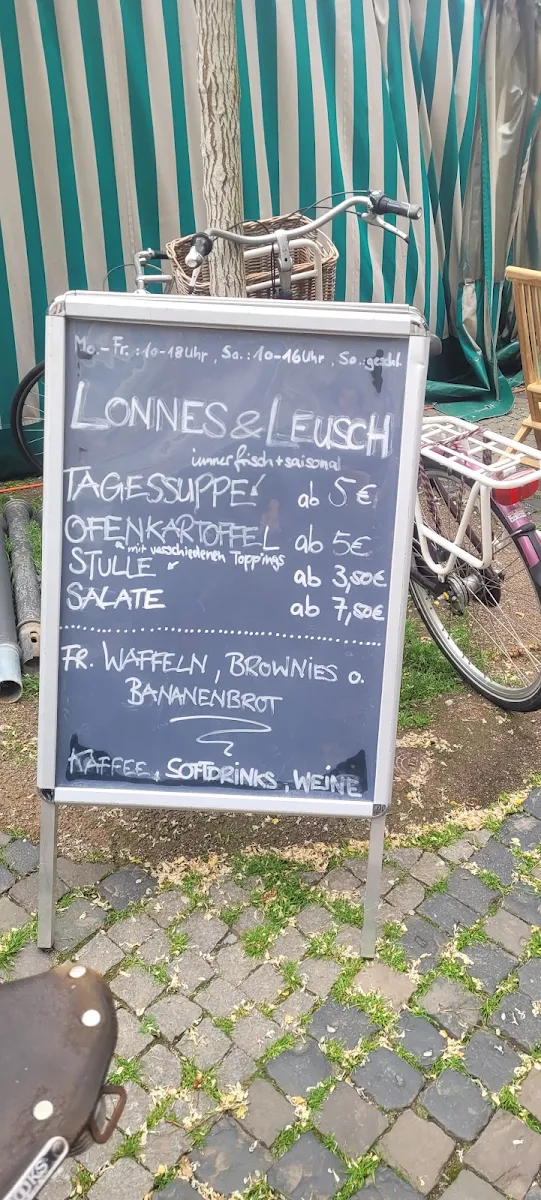 Mo.-Fr.: 10-18Uhr, Sa.: 10-16Uhr, So. geschl.
LONNES & LEUSCH
immer frisch + saisonal
TAGESSUPPE ab 5€
OFENKARTOFFEL ab 5€
mit verschiedenen Toppings
STULLE ab 3,50€
SALATE ab 7,50€
FR. WAFFELN, BROWNIES o.
BANANENBROT
KAFFEE, SOFTDRINKS, WEINE